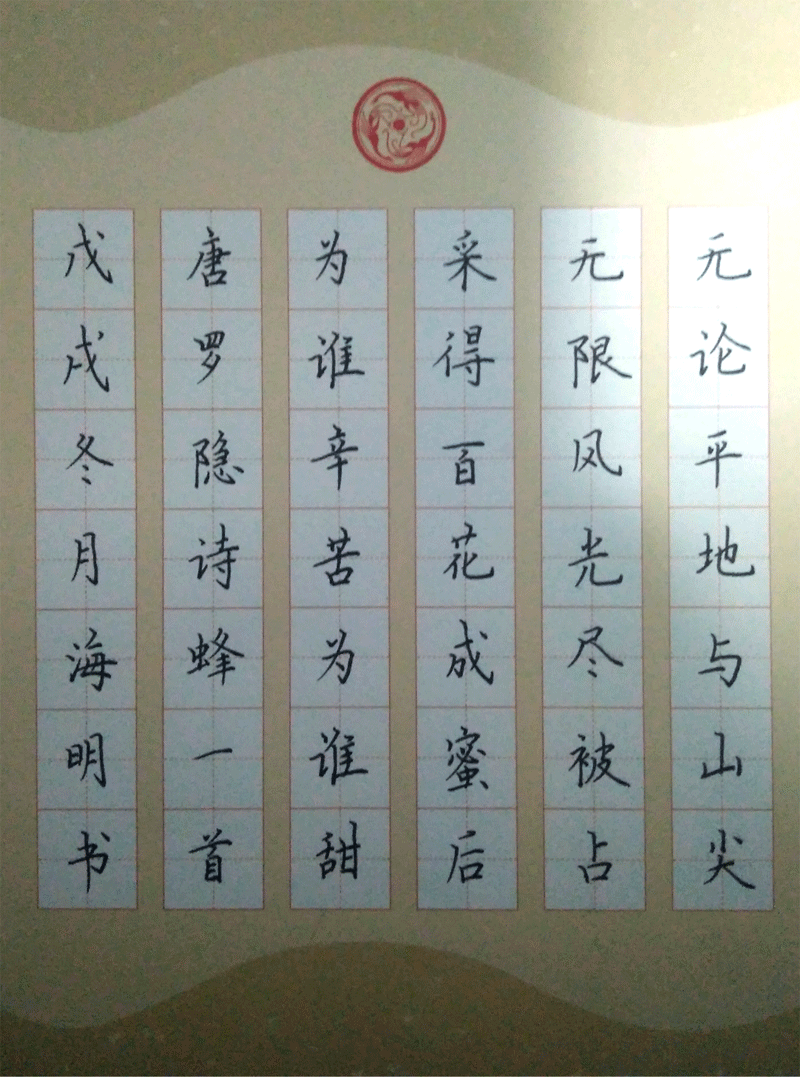 无论平地与山尖
无限风光尽被占
采得百花成蜜后
为谁辛苦为谁甜
唐罗隐诗蜂一首
戊戌冬月海明书